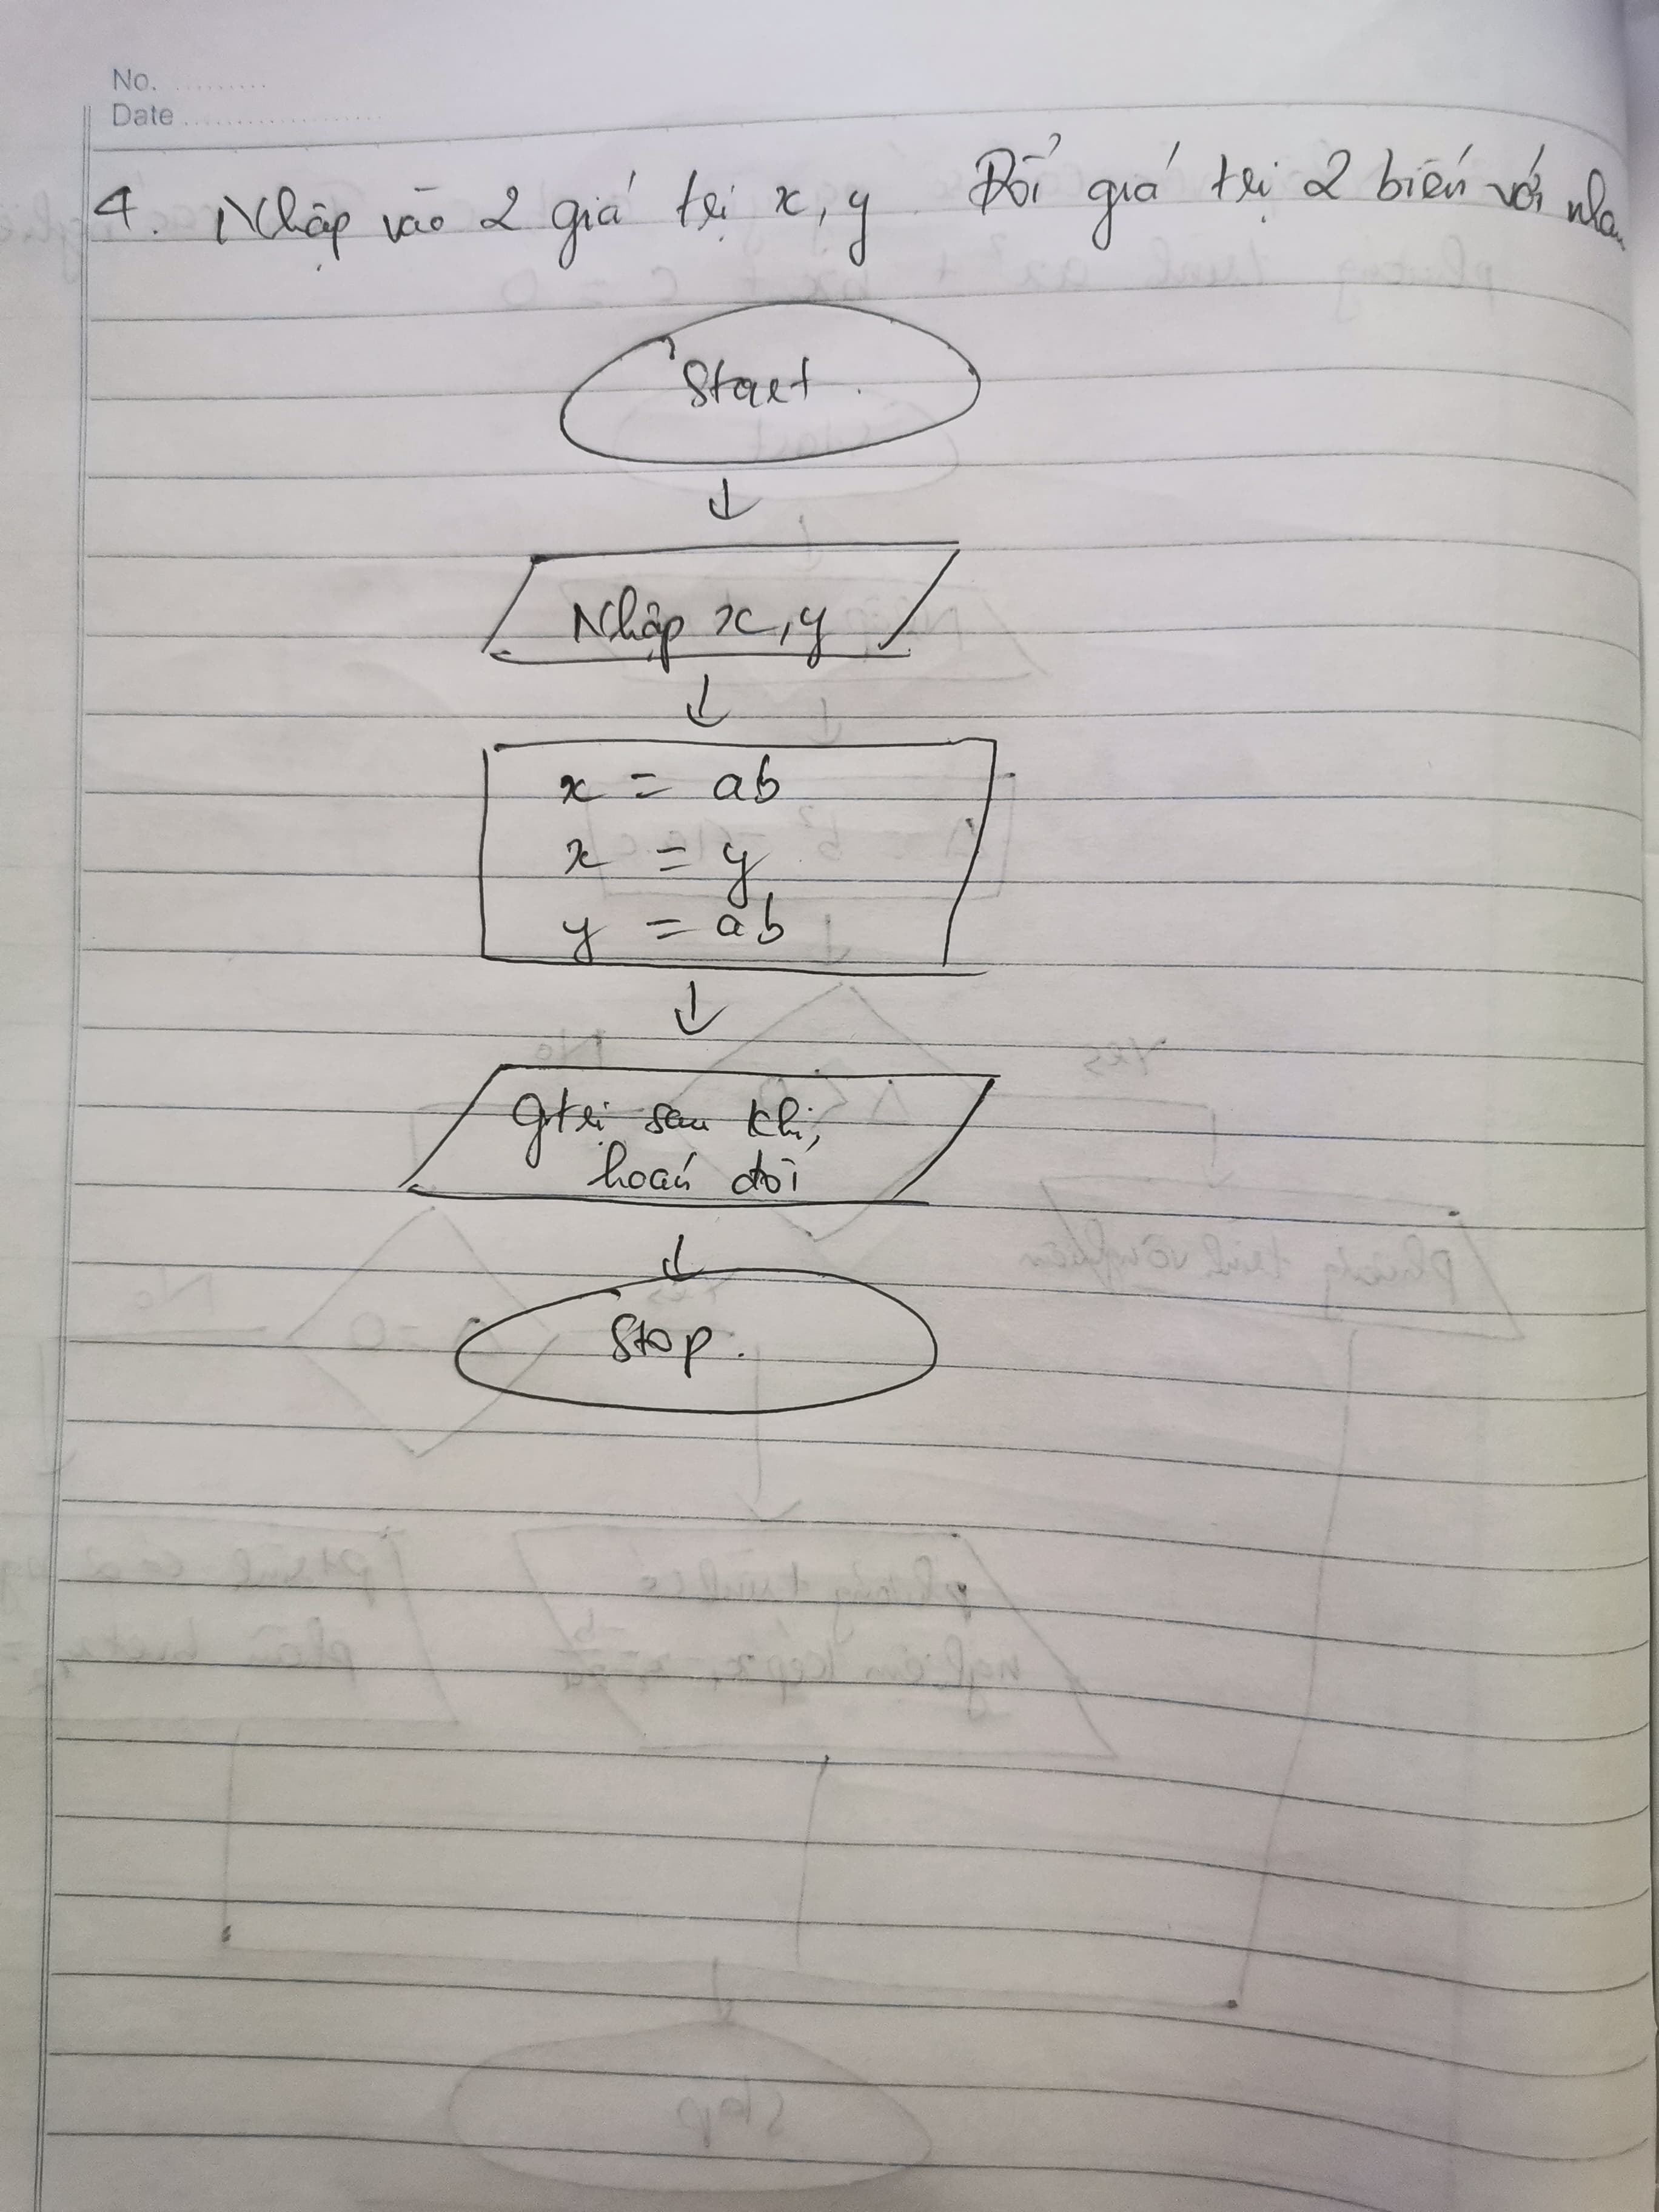 No. ..........
Date ....................
4. Nhập vào 2 giá trị x, y. Đổi giá trị 2 biến với
Start
Nhập x, y
x = ab
x = y
y = ab
Gtrị sau khi
hoán đổi
Stop.